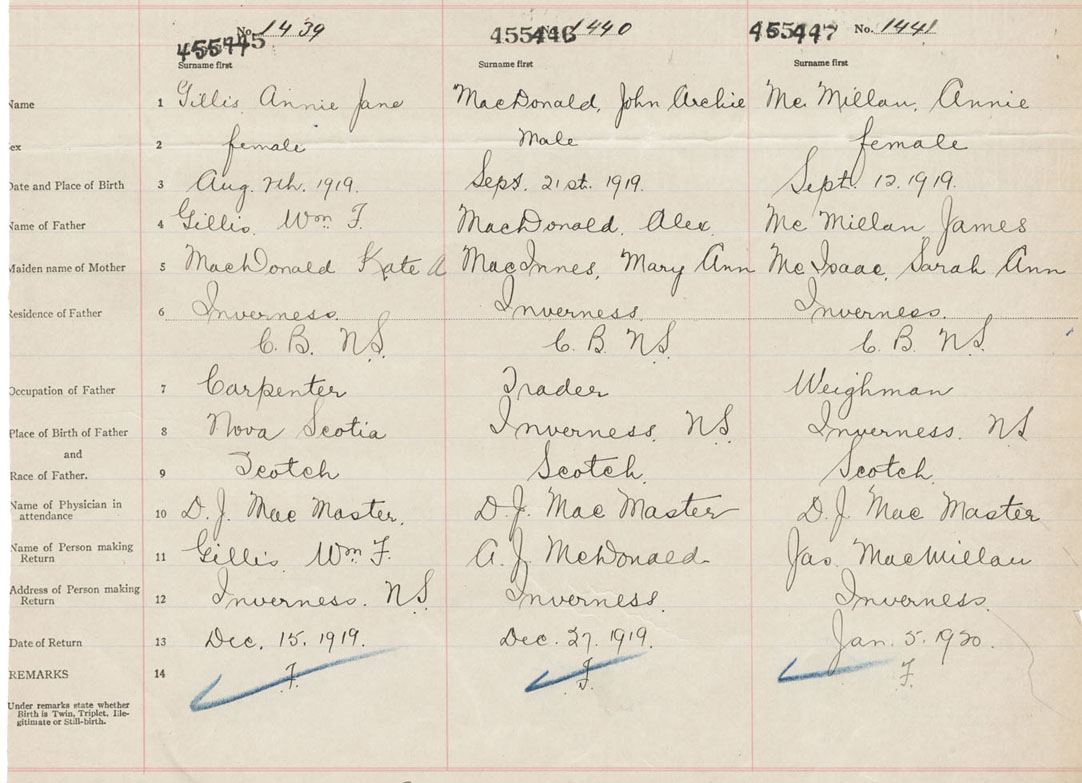 No. 1439 No. 1440 No. 1441
455445 455446 455447
Surname first Surname first Surname first
Name 1 Gillis Annie Jane MacDonald, John Archie Mc Millan, Annie
ex 2 female Male female
Date and Place of Birth 3 Aug. 7th. 1919. Sept. 21st. 1919. Sept. 12. 1919.
Name of Father 4 Gillis, Wm F. MacDonald, Alex. Mc Millan James
Maiden name of Mother 5 MacDonald Kate A MacInnes, Mary Ann McIsaac, Sarah Ann
Residence of Father 6 Inverness. Inverness. Inverness.
C. B. N.S. C. B. N.S. C. B. N.S.
Occupation of Father 7 Carpenter Trader Weighman
Place of Birth of Father 8 Nova Scotia Inverness, N.S. Inverness. N.S
and
Race of Father. 9 Scotch Scotch. Scotch.
Name of Physician in
attendance 10 D. J. Mac Master. D. J. Mac Master D. J. Mac Master
Name of Person making
Return 11 Gillis, Wm F. A. J. McDonald Jas. MacMillan
Address of Person making
Return 12 Inverness. N.S. Inverness. Inverness.
Date of Return 13 Dec. 15. 1919. Dec. 27. 1919. Jan. 5. 1920.
REMARKS 14 F. F. F.
Under remarks state whether
Birth is Twin, Triplet, Ille-
gitimate or Still-birth.